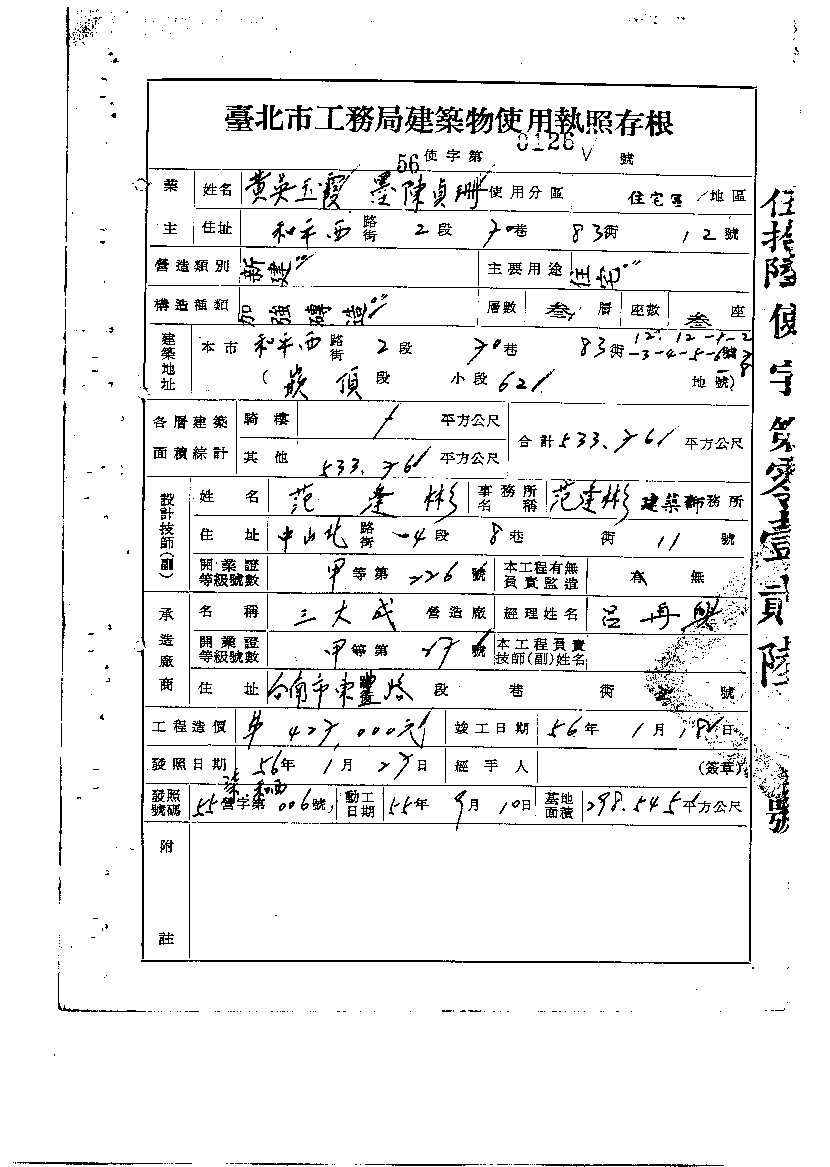 臺北市工務局建築物使用執照存根
56使字第0126號
業主 姓名 黃吳玉霞 墨陳貞珊 使用分區 住宅區 地區
住址 和平西路街 2段 70巷 83衖 12號
營造類別 新建 主要用途 住宅
構造種類 加強磚造 層數 叁層 座數 叁座
建築地址 本市 和平西路街 2段 70巷 83衖 12.12-1-2
-3-4-5-6號
(崁頂段 小段 621 地號)
各層建築面積綜計 騎樓 / 平方公尺 合計533.761平方公尺
其他 533.761平方公尺
設計技師(副) 姓名 范逢彬 事務所名稱 范逢彬建築師務所
住址 中山北路街 段 8巷 衖 11號
開業證等級號數 甲等第226號 本工程有無負責監造 有 無
承造廠商 名稱 三大成 營造廠 經理姓名 呂再興
開業證等級號數 甲等第276號 本工程負責技師(副)姓名
住址 台南市東豐路 段 巷 衖 號
工程造價 427,000元 竣工日期 56年1月18日
發照日期 56年1月27日 經手人 (簽章)
發照號碼 55營字第006號 動工日期 55年9月10日 基地面積 298.545平方公尺
附註
伍拾陸使字第零壹貳陸號